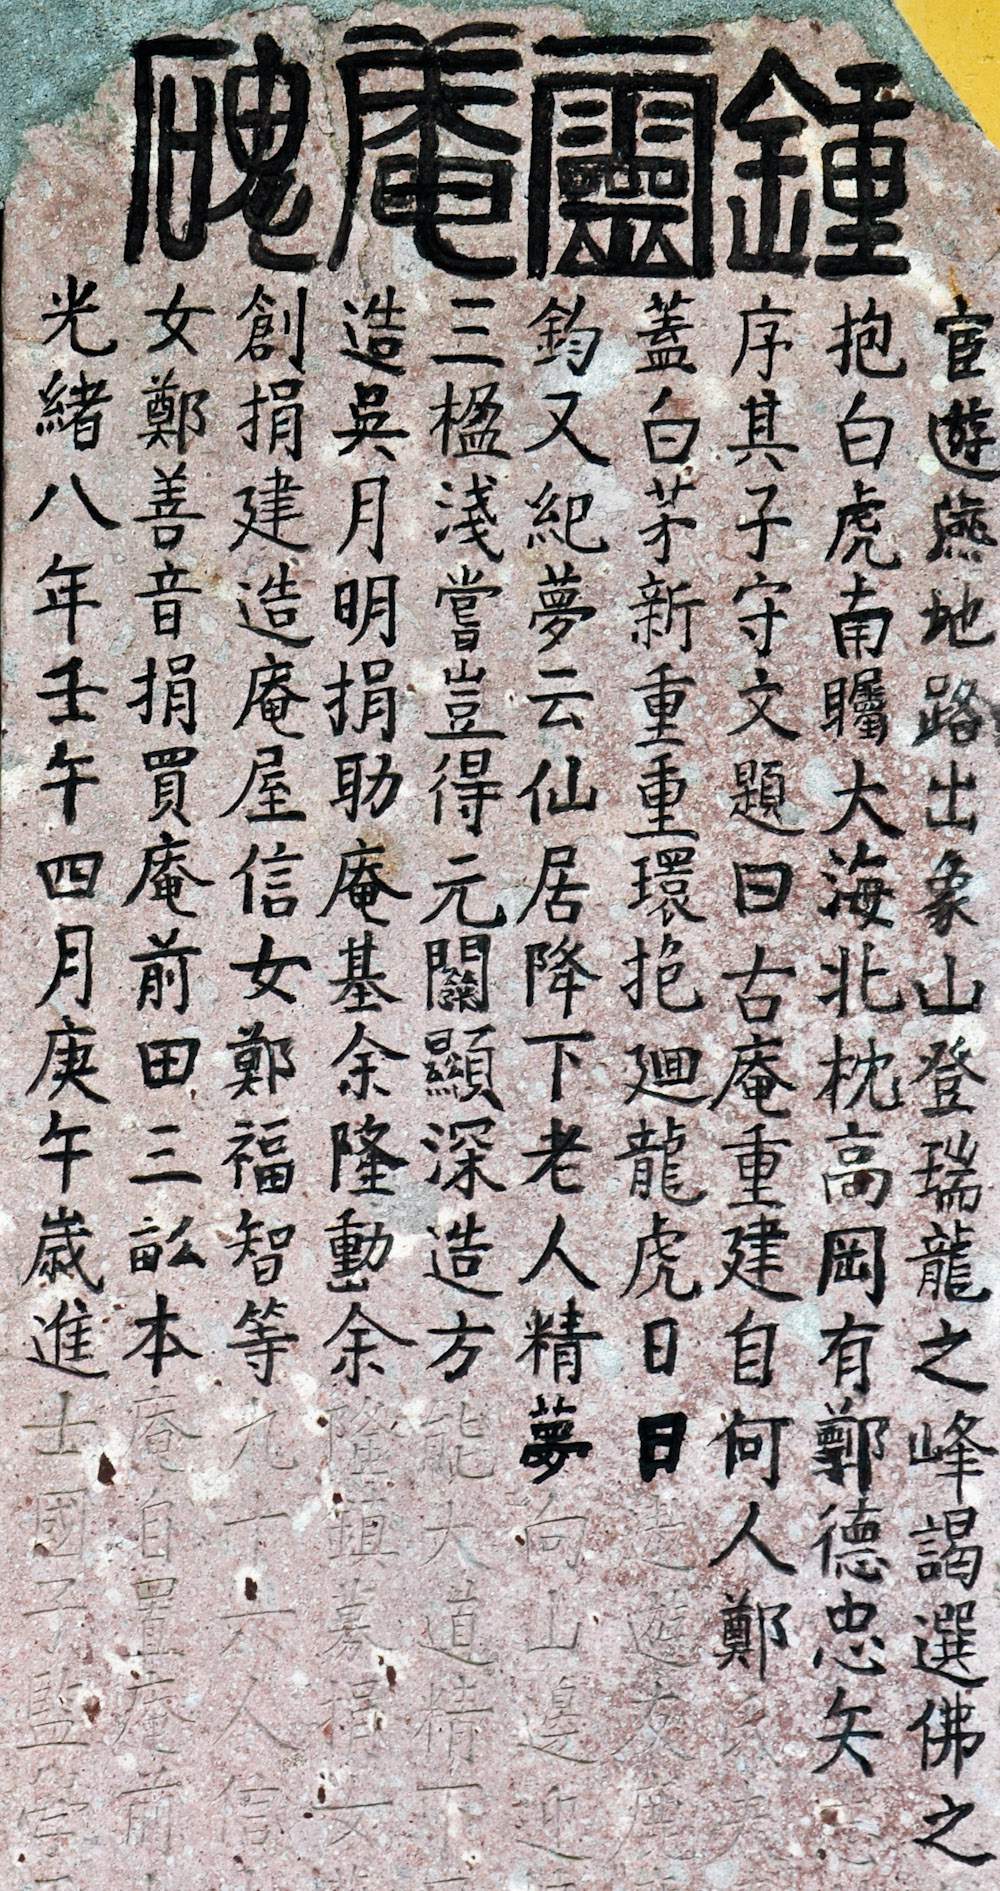 鍾靈庵碑
宦遊燕地路出象山登瑞龍之峰謁選佛之
抱白虎南矚大海北枕高岡有鄭德忠矢
序其子守文題曰古庵重建自何人鄭
蓋白茅新重重環抱廻龍虎日日
鈞又紀夢云仙居降下老人精夢向山邊迎
三楹淺嘗豈得元關顯深造方能大道精下
造吳月明捐助庵基余隆動余隆鎮募捐女
創捐建造庵屋信女鄭福智等九十六人信
女鄭善音捐買庵前田三畝本庵自置庵前
光緒八年壬午四月庚午歲進士國子監學